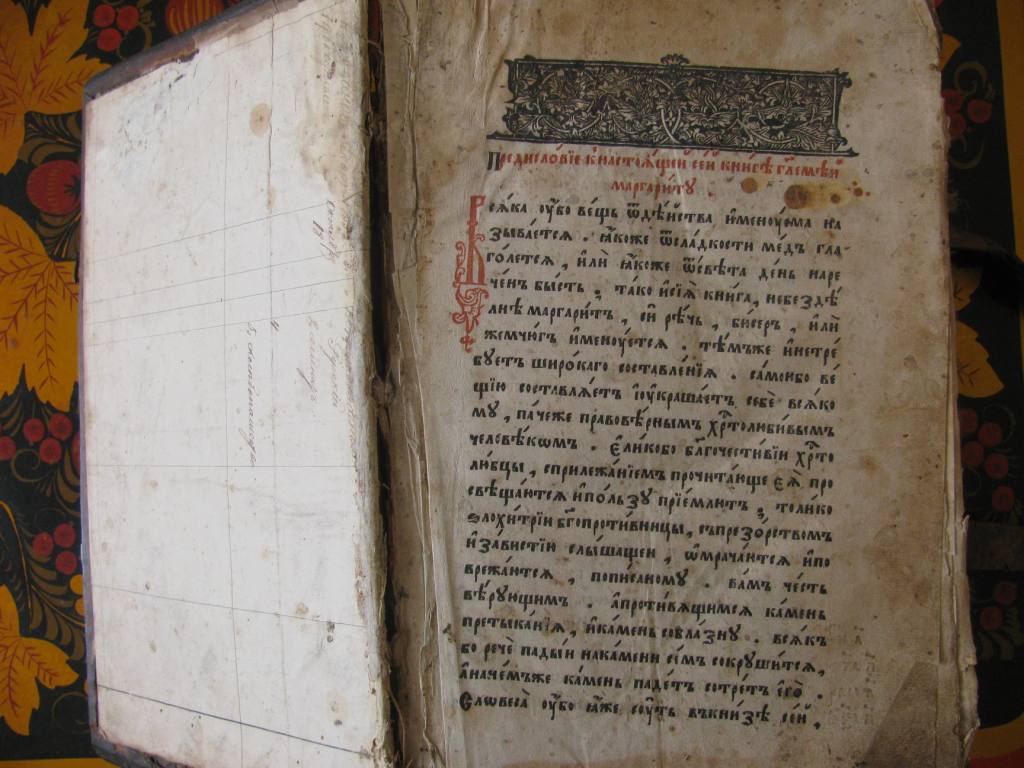 Предисло́вїе к̾настоѧ́щей се́й кни́гѣ гл҃емѣ́й
маргари́тꙋ .
Всѧ́ка ᲂу҆́бо ве́щь ѿдѣ́йства и҆менᲂу́ема на
зыва́ется . ꙗ҆́коже ѿсла́дкости ме́дъ гла
го́лется , и҆лѝ ꙗ҆́коже ѿсвѣ́та де́нь наре
че́нъ бы́сть , та́ко исїѧ̀ кни́га , небез̾дѣ́
лнѣ маргари́тъ , си́ рѣчь , би́серъ , и҆лѝ
же́мчюгъ и҆менᲂу́ется . тѣ́мъже и҆нетре́
бꙋетъ широ́каго составле́нїѧ . самоибо ве́
щїю составлѧ́етъ ᲂу҆краша́етъ себѐ всѧ́ко
мꙋ , па́чеже правовѣ́рнымъ хрⷭ҇толюби́вымъ
человѣ́кѡмъ . Е҆ли́кобо бл҃гочести́вїи хрⷭ҇то
лю́бцы , сприлѣжа́нїемъ прочита́юще є҆ѧ̀ про
свѣща́ются и҆по́льзꙋ прїе́млютъ , толи́ко
ѕлохи́трїи бг҃опроти́вницы , съпрезо́рствомъ
и҆за́вистїю слы́шащеи , ѡ҆мрача́ются и҆по
врежа́ются , пописаномꙋ . ва́мъ че́сть
вѣ́рꙋющимъ . а҆проти́вѧщимсѧ ка́мень
претыка́нїѧ , и҆ка́мень собла́знꙋ . всѧ́къ
бо речѐ пады́и накамени се́мъ сокрꙋши́тсѧ ,
а҆наче́мъже ка́мень паде́тъ сотре́тъ є҆го̀ .
Словеса̀ ᲂу҆́бо ꙗ҆́же сꙋ́ть въкни́зѣ се́й ,